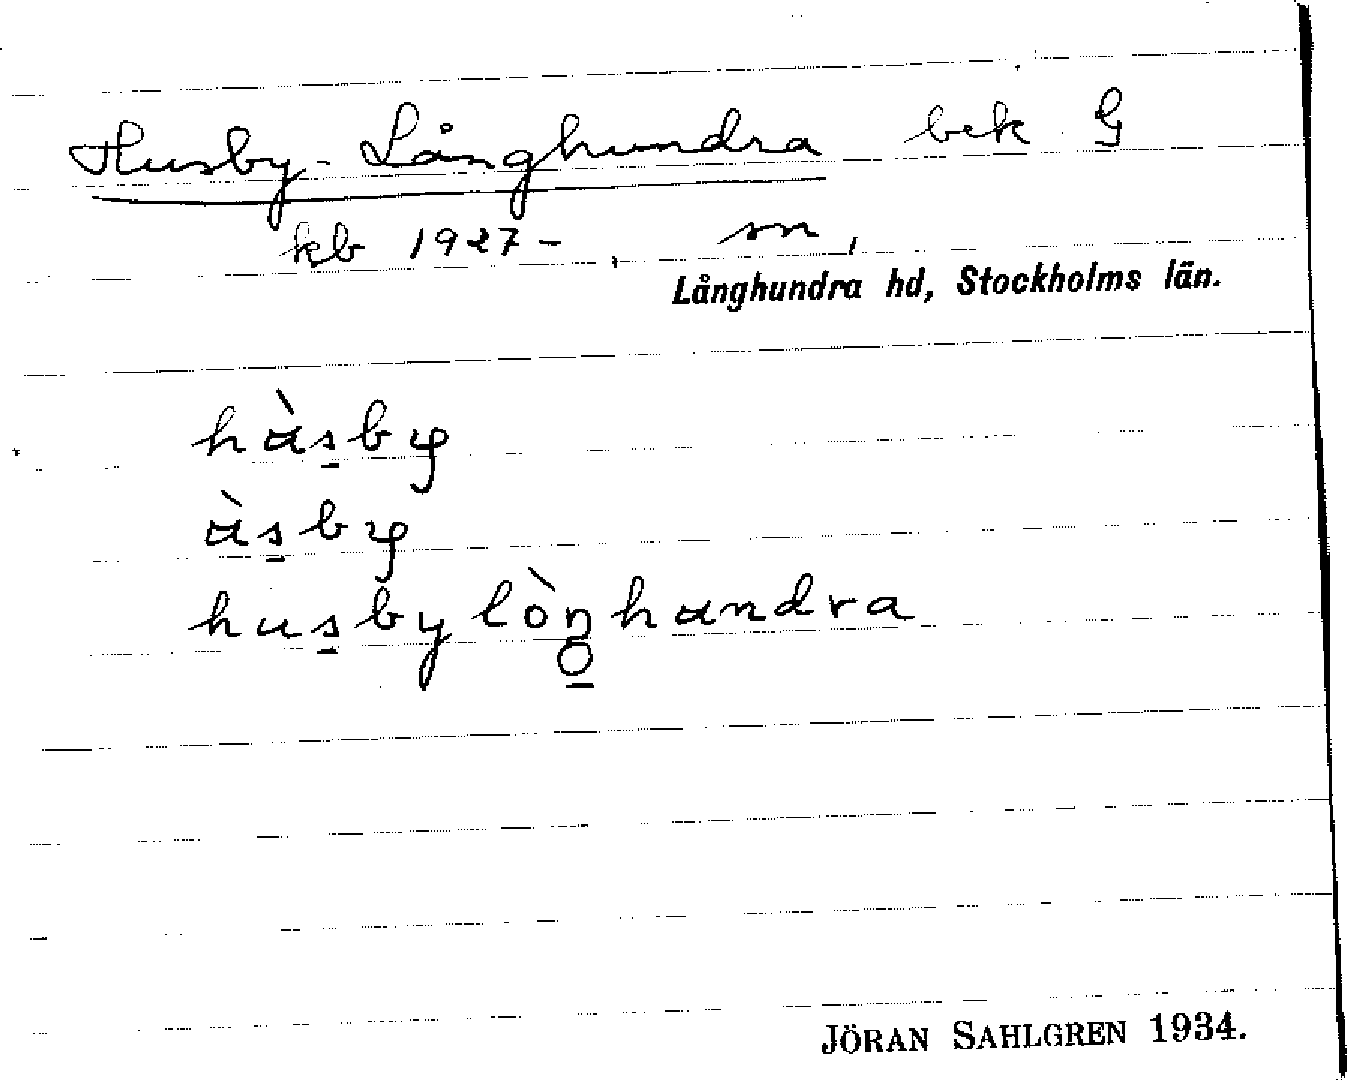 Husby-Långhundra bek G
kb 1927- , sn,
Långhundra hd, Stockholms län.
hùs̱by
ùs̱by
hus̱bylòŋhundra
JÖRAN SAHLGREN 1934.